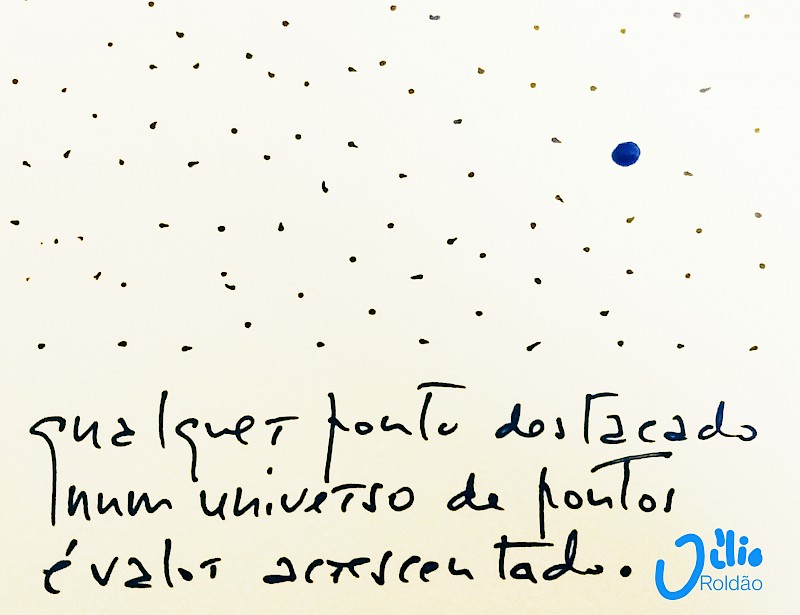 qualquer ponto destacado
num universo de pontos
é valor acrescentado.
Júlio
Roldão